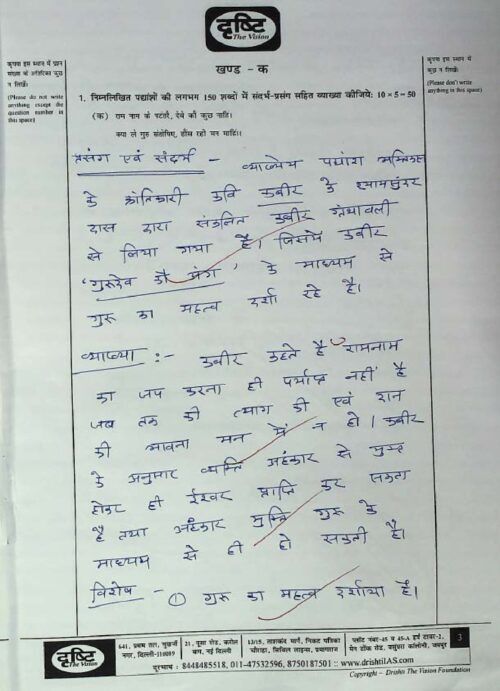 दृष्टि
The Vision
कृपया इस स्थान में प्रश्न
संख्या के अतिरिक्त कुछ
न लिखें।
(Please do not write
anything except the
question number in
this space)
कृपया इस स्थान में
कुछ न लिखें।
(Please don't write
anything in this space)
खण्ड - क
1. निम्नलिखित पद्यांशों की लगभग 150 शब्दों में संदर्भ-प्रसंग सहित व्याख्या कीजिये: 10 × 5 = 50
(क) राम नाम के पटतरे, देबे कौं कुछ नाहिं।
क्या ले गुरु संतोषिए, हौंस रही मन माहिं।।
प्रसंग एवं संदर्भ - व्याख्येय पद्यांश भक्तिकाल
के क्रांतिकारी कवि कबीर के श्यामसुंदर
दास द्वारा संकलित कबीर ग्रंथावली
से लिया गया है। जिसमें कबीर
'गुरुदेव कौ अंग' के माध्यम से
गुरु का महत्व दर्शा रहे है।
व्याख्या :- कबीर कहते है रामनाम
का जप करना ही पर्याप्त नहीं है
जब तक की त्याग की एवं दान
की भावना मन में न हो। कबीर
के अनुसार व्यक्ति अहंकार से मुक्त
होकर ही ईश्वर प्राप्ति कर सकता
है तथा अहंकार मुक्ति गुरु के
माध्यम से ही हो सकती है।
विशेष - ① गुरु का महत्व दर्शाया है।
दृष्टि
The Vision
641, प्रथम तल, मुखर्जी
नगर, दिल्ली-110009
21, पूसा रोड, करोल
बाग, नई दिल्ली
13/15, ताशकंद मार्ग, निकट पत्रिका
चौराहा, सिविल लाइन्स, प्रयागराज
प्लॉट नंबर-45 व 45-A हर्ष टावर-2,
मेन टोंक रोड, वसुंधरा कॉलोनी, जयपुर
3
दूरभाष : 8448485518, 011-47532596, 8750187501 :: www.drishtiIAS.com
Copyright – Drishti The Vision Foundation